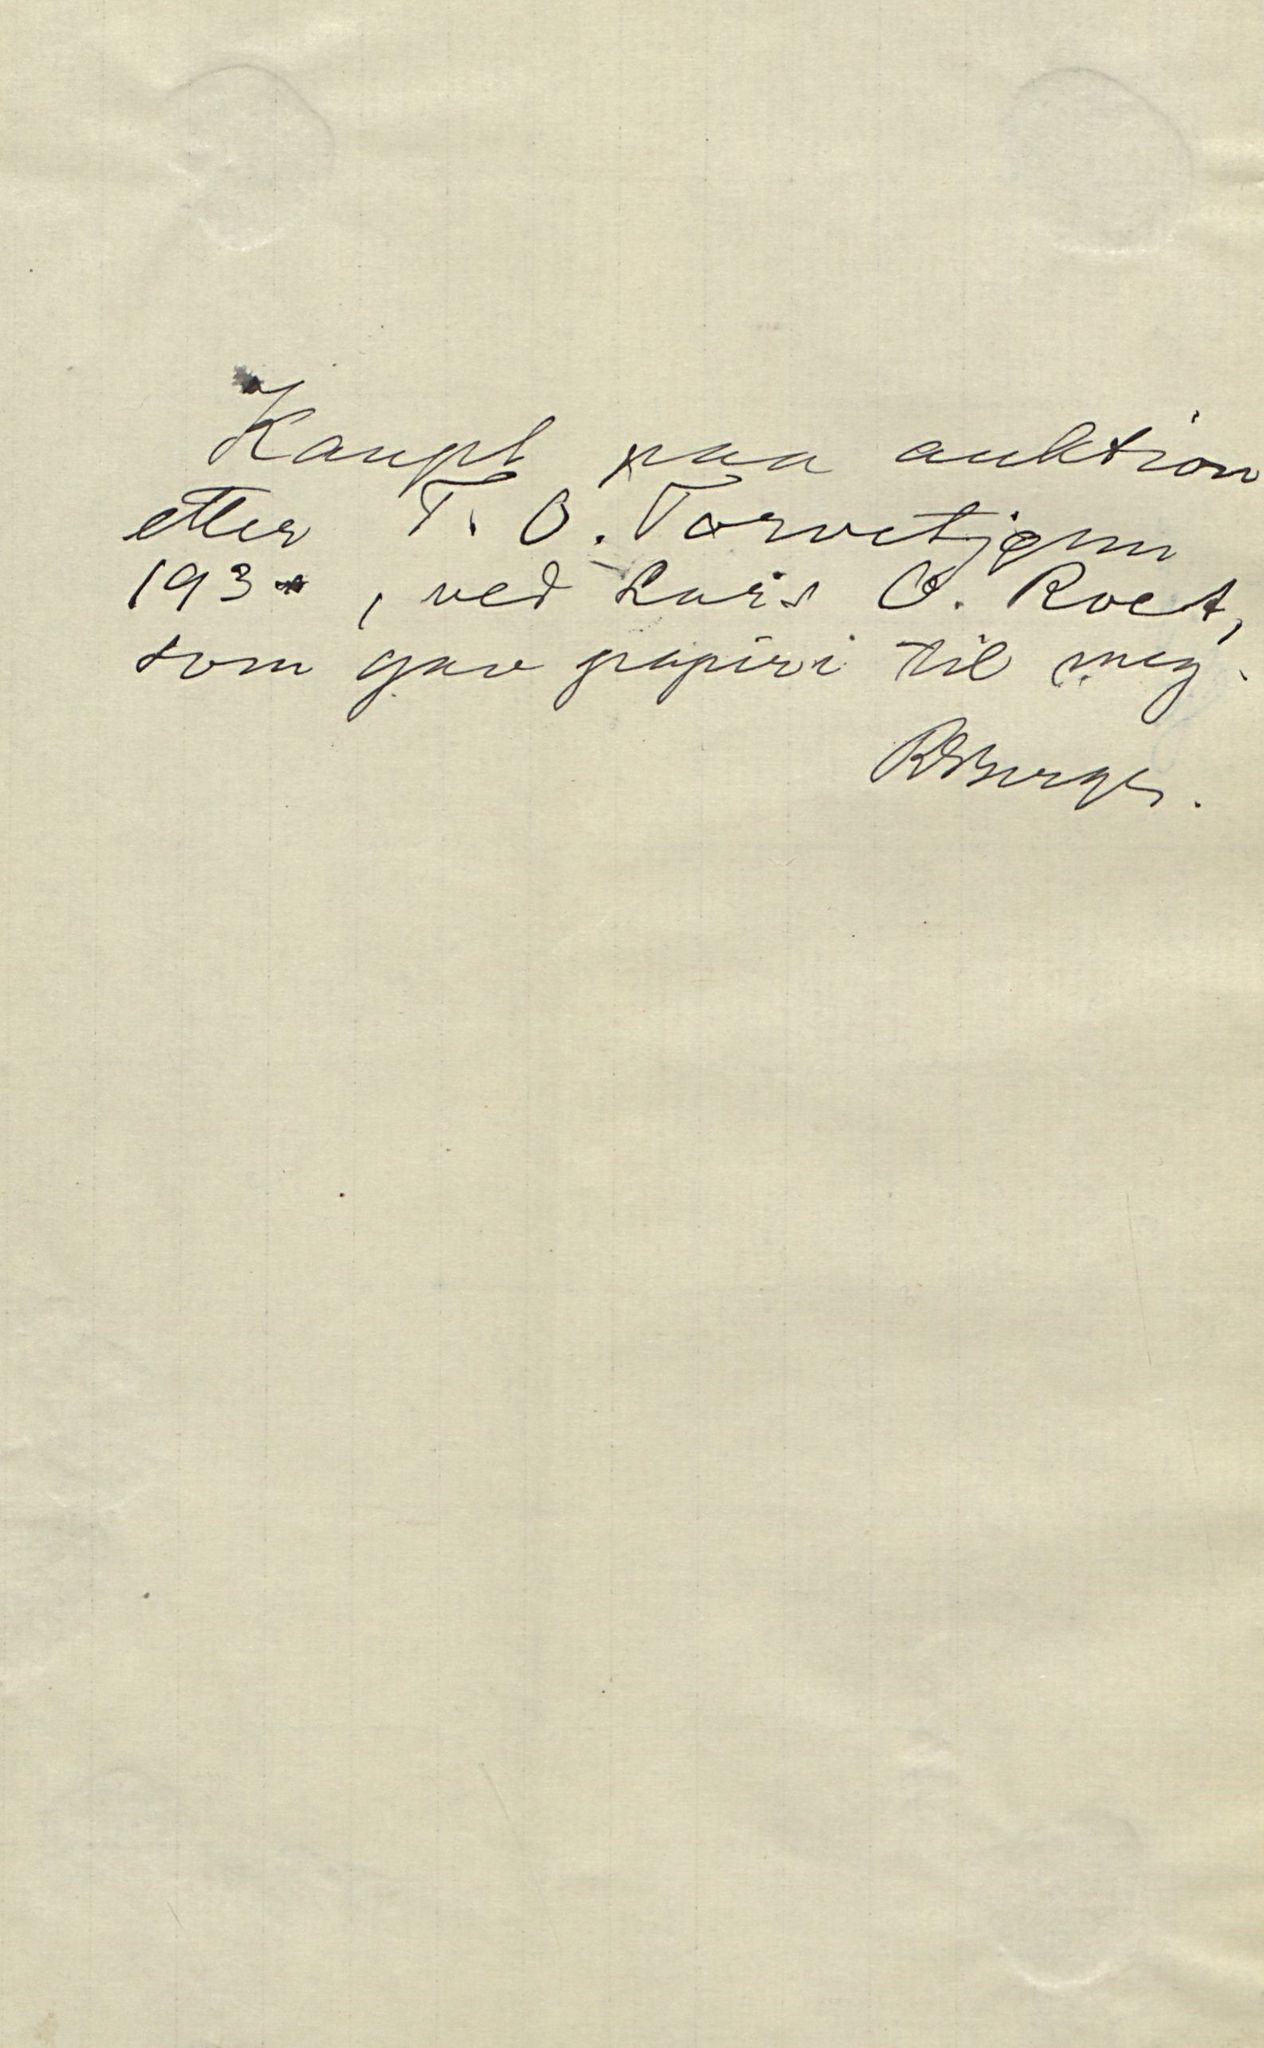 Kaupt paa auktion
etter T. O. Torvetjønn
193 , ved Lars O. Roet,
som gav papiri til meg.
RBerge.